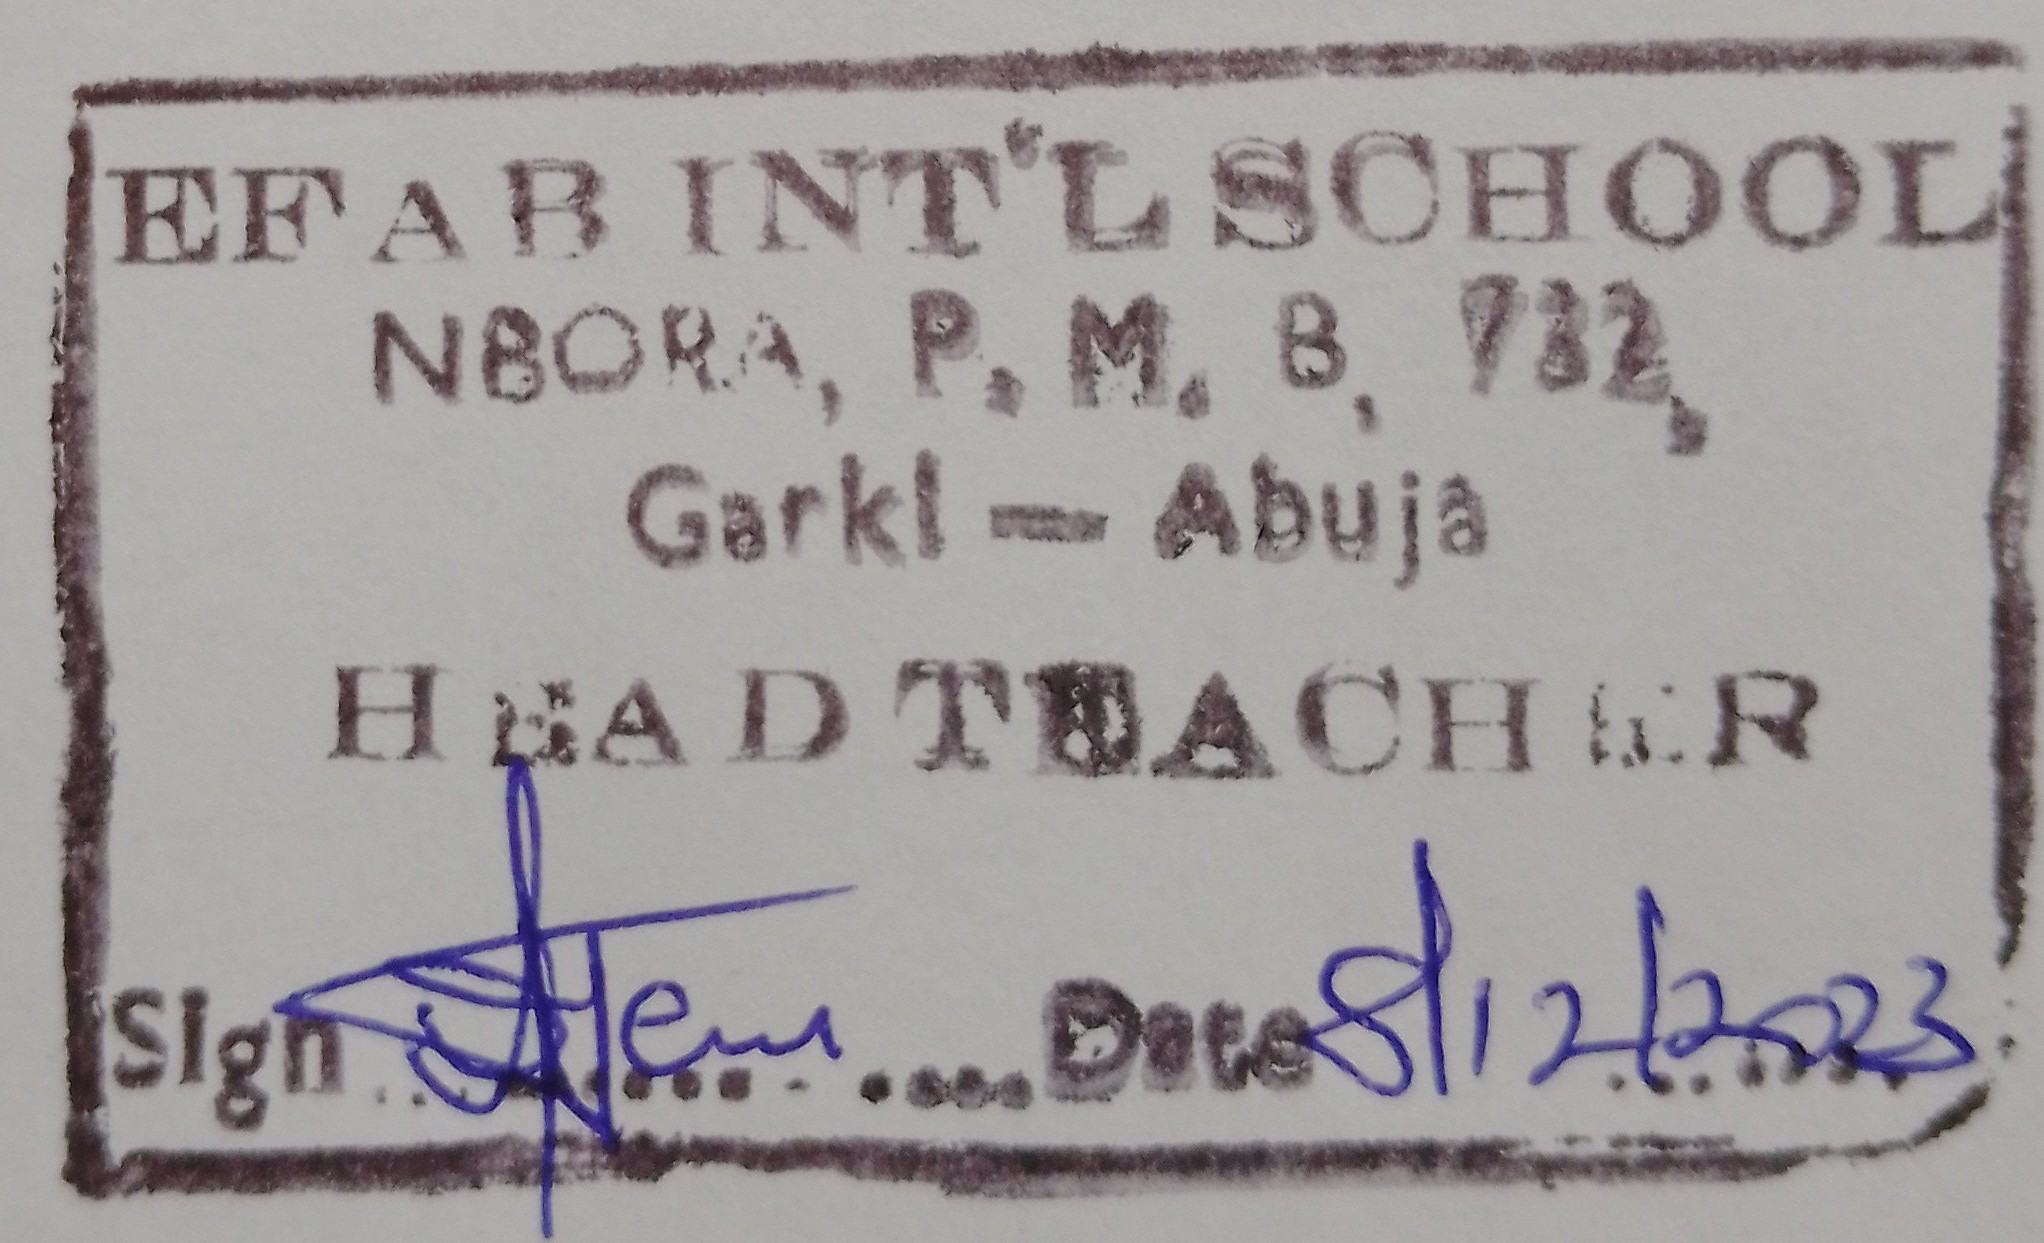 EFAB INT'L SCHOOL
NBORA, P. M. B. 732,
Garki — Abuja
HEAD TEACHER
Sign Date 8/12/2023